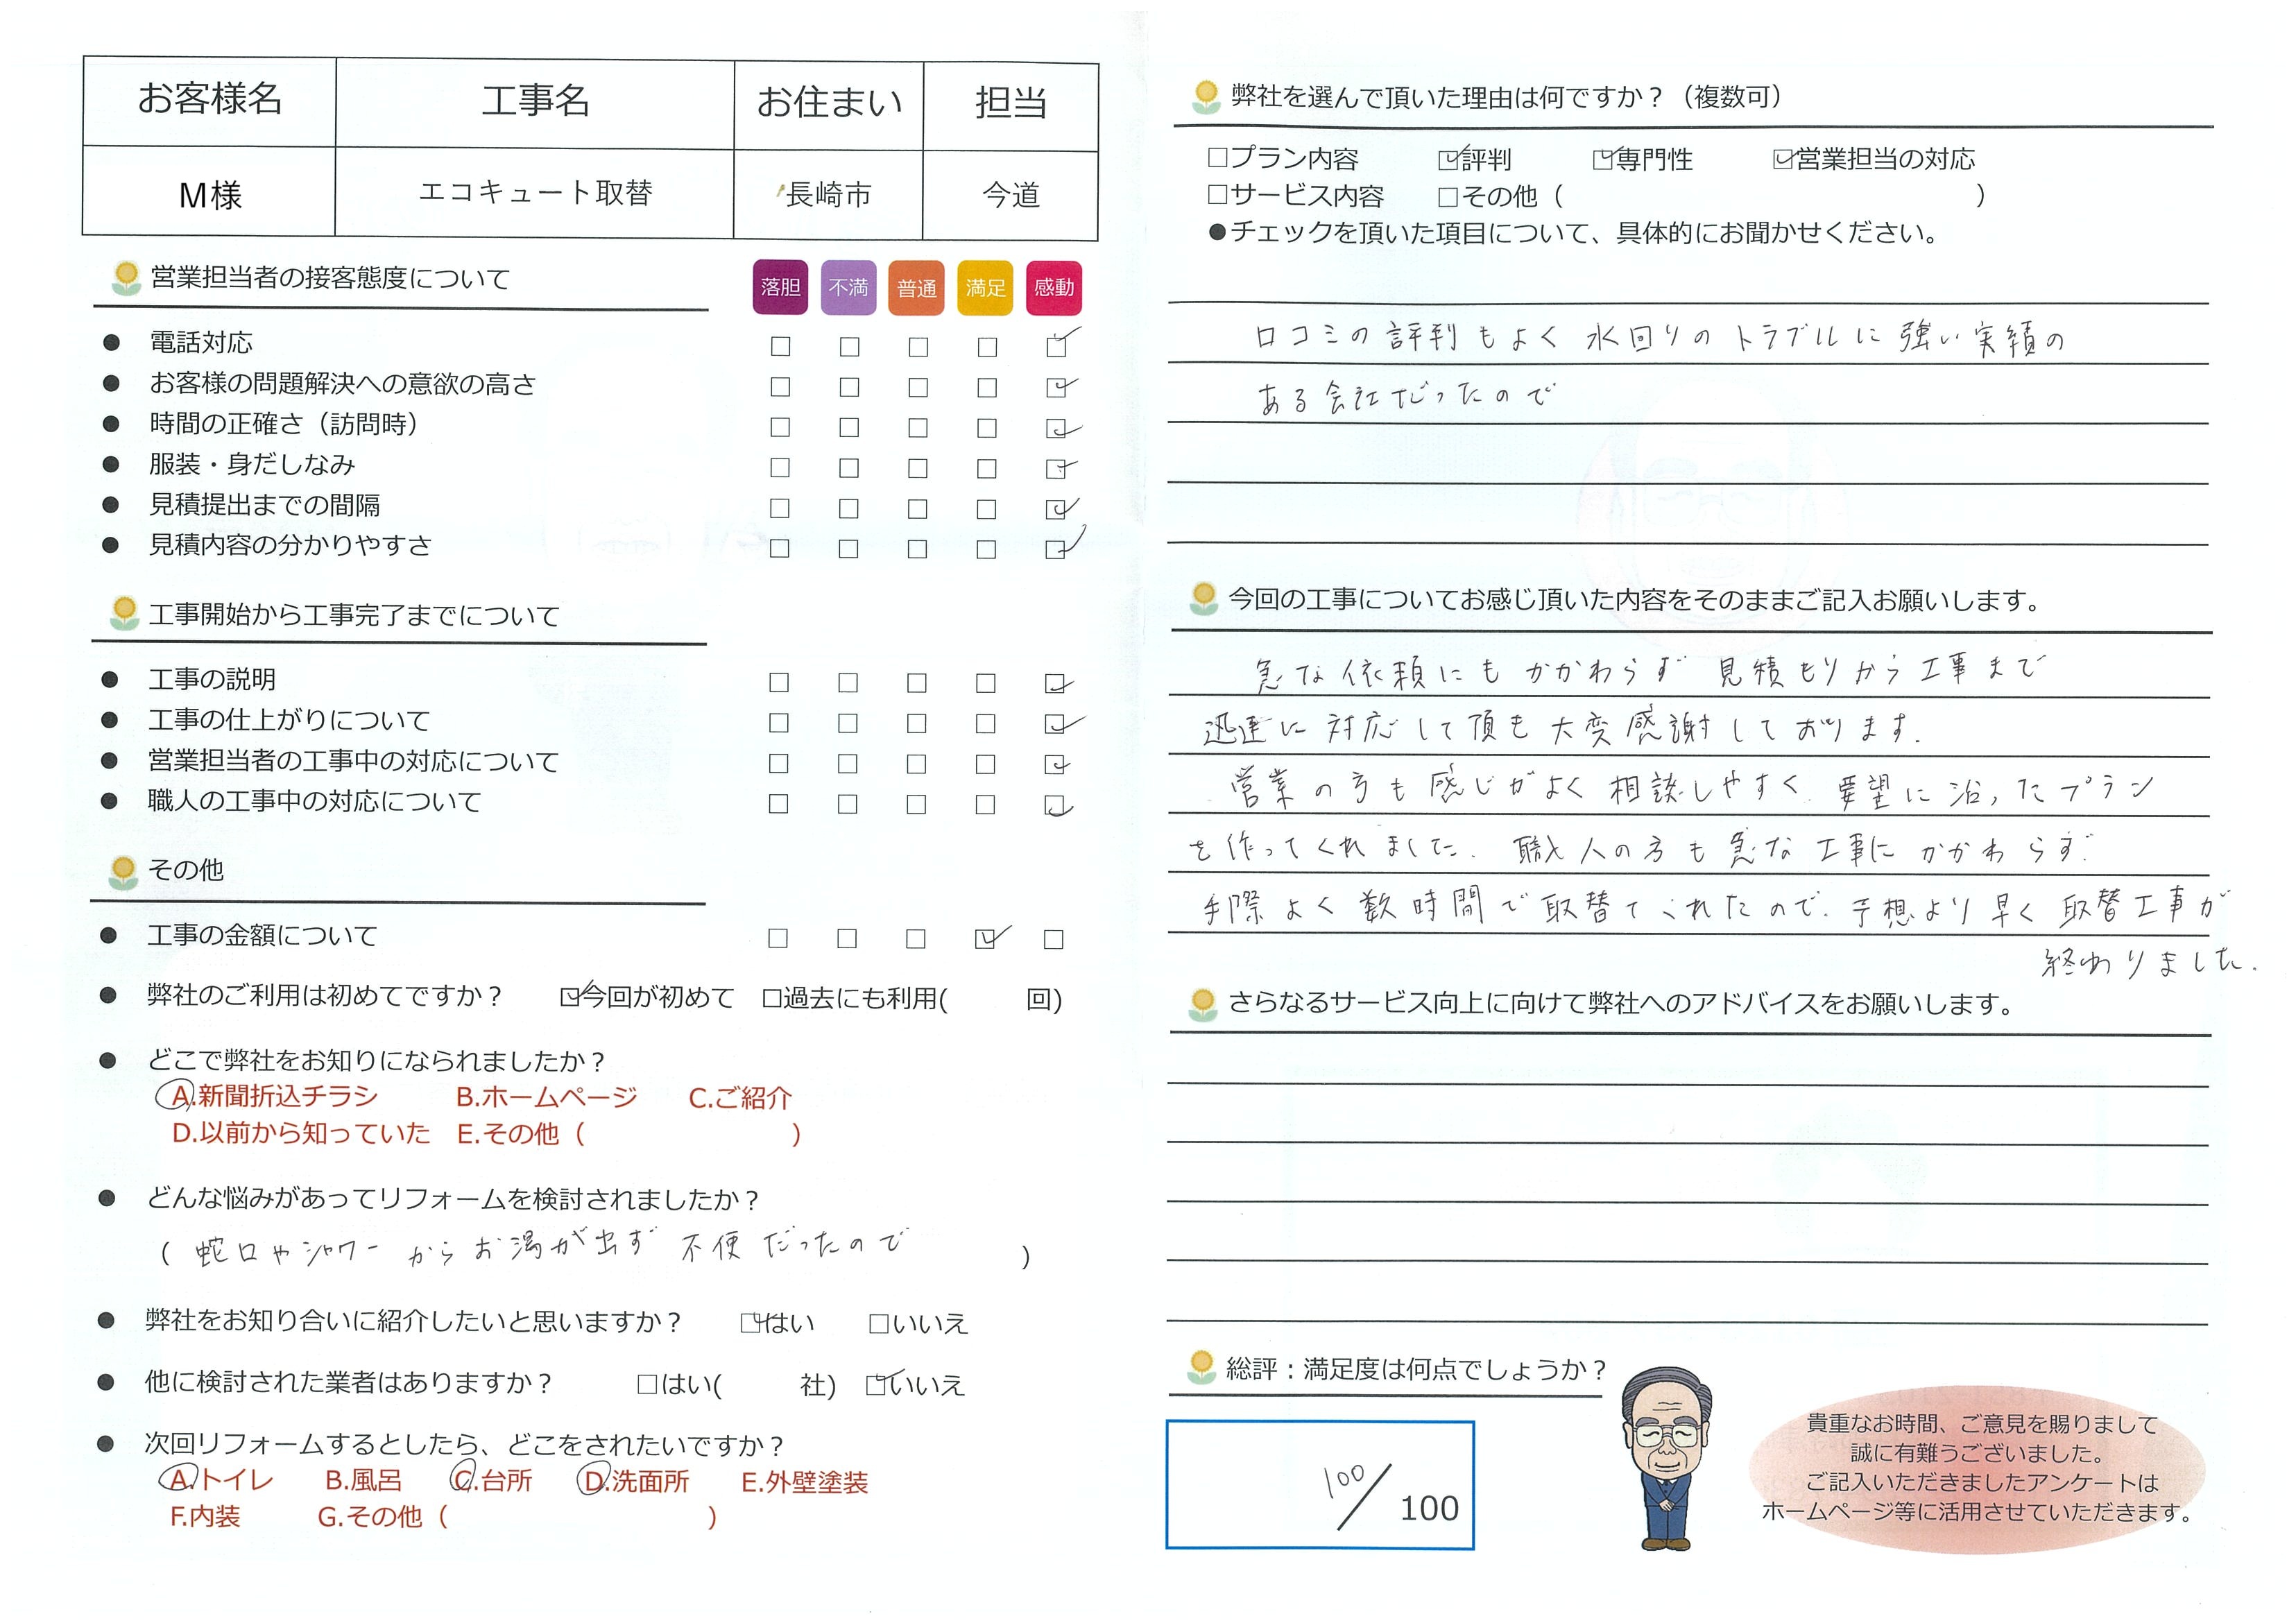 お客様名 工事名 お住まい 担当
M様 エコキュート取替 長崎市 今道
営業担当者の接客態度について 落胆 不満 普通 満足 感動
● 電話対応 □ □ □ □ ☑
● お客様の問題解決への意欲の高さ □ □ □ □ ☑
● 時間の正確さ（訪問時） □ □ □ □ ☑
● 服装・身だしなみ □ □ □ □ ☑
● 見積提出までの間隔 □ □ □ □ ☑
● 見積内容の分かりやすさ □ □ □ □ ☑
工事開始から工事完了までについて
● 工事の説明 □ □ □ □ ☑
● 工事の仕上がりについて □ □ □ □ ☑
● 営業担当者の工事中の対応について □ □ □ □ ☑
● 職人の工事中の対応について □ □ □ □ ☑
その他
● 工事の金額について □ □ □ ☑ □
● 弊社のご利用は初めてですか？ ☑今回が初めて □過去にも利用( 回)
● どこで弊社をお知りになられましたか？
A.新聞折込チラシ B.ホームページ C.ご紹介
D.以前から知っていた E.その他（ ）
● どんな悩みがあってリフォームを検討されましたか？
( 蛇口やシャワーからお湯が出ず不便だったので )
● 弊社をお知り合いに紹介したいと思いますか？ ☑はい □いいえ
● 他に検討された業者はありますか？ □はい( 社) ☑いいえ
● 次回リフォームするとしたら、どこをされたいですか？
A.トイレ B.風呂 C.台所 D.洗面所 E.外壁塗装
F.内装 G.その他（ ）
弊社を選んで頂いた理由は何ですか？（複数可）
□プラン内容 ☑評判 ☑専門性 ☑営業担当の対応
□サービス内容 □その他（ ）
●チェックを頂いた項目について、具体的にお聞かせください。
口コミの評判もよく水回りのトラブルに強い実績の
ある会社だったので
今回の工事についてお感じ頂いた内容をそのままご記入お願いします。
急な依頼にもかかわらず見積もりから工事まで
迅速に対応して頂き大変感謝しております.
営業の方も感じがよく相談しやすく要望に沿ったプラン
を作ってくれました. 職人の方も急な工事にかかわらず
手際よく数時間で取替てくれたので. 予想より早く取替工事が
終わりました.
さらなるサービス向上に向けて弊社へのアドバイスをお願いします。
総評：満足度は何点でしょうか？
100/100
貴重なお時間、ご意見を賜りまして
誠に有難うございました。
ご記入いただきましたアンケートは
ホームページ等に活用させていただきます。